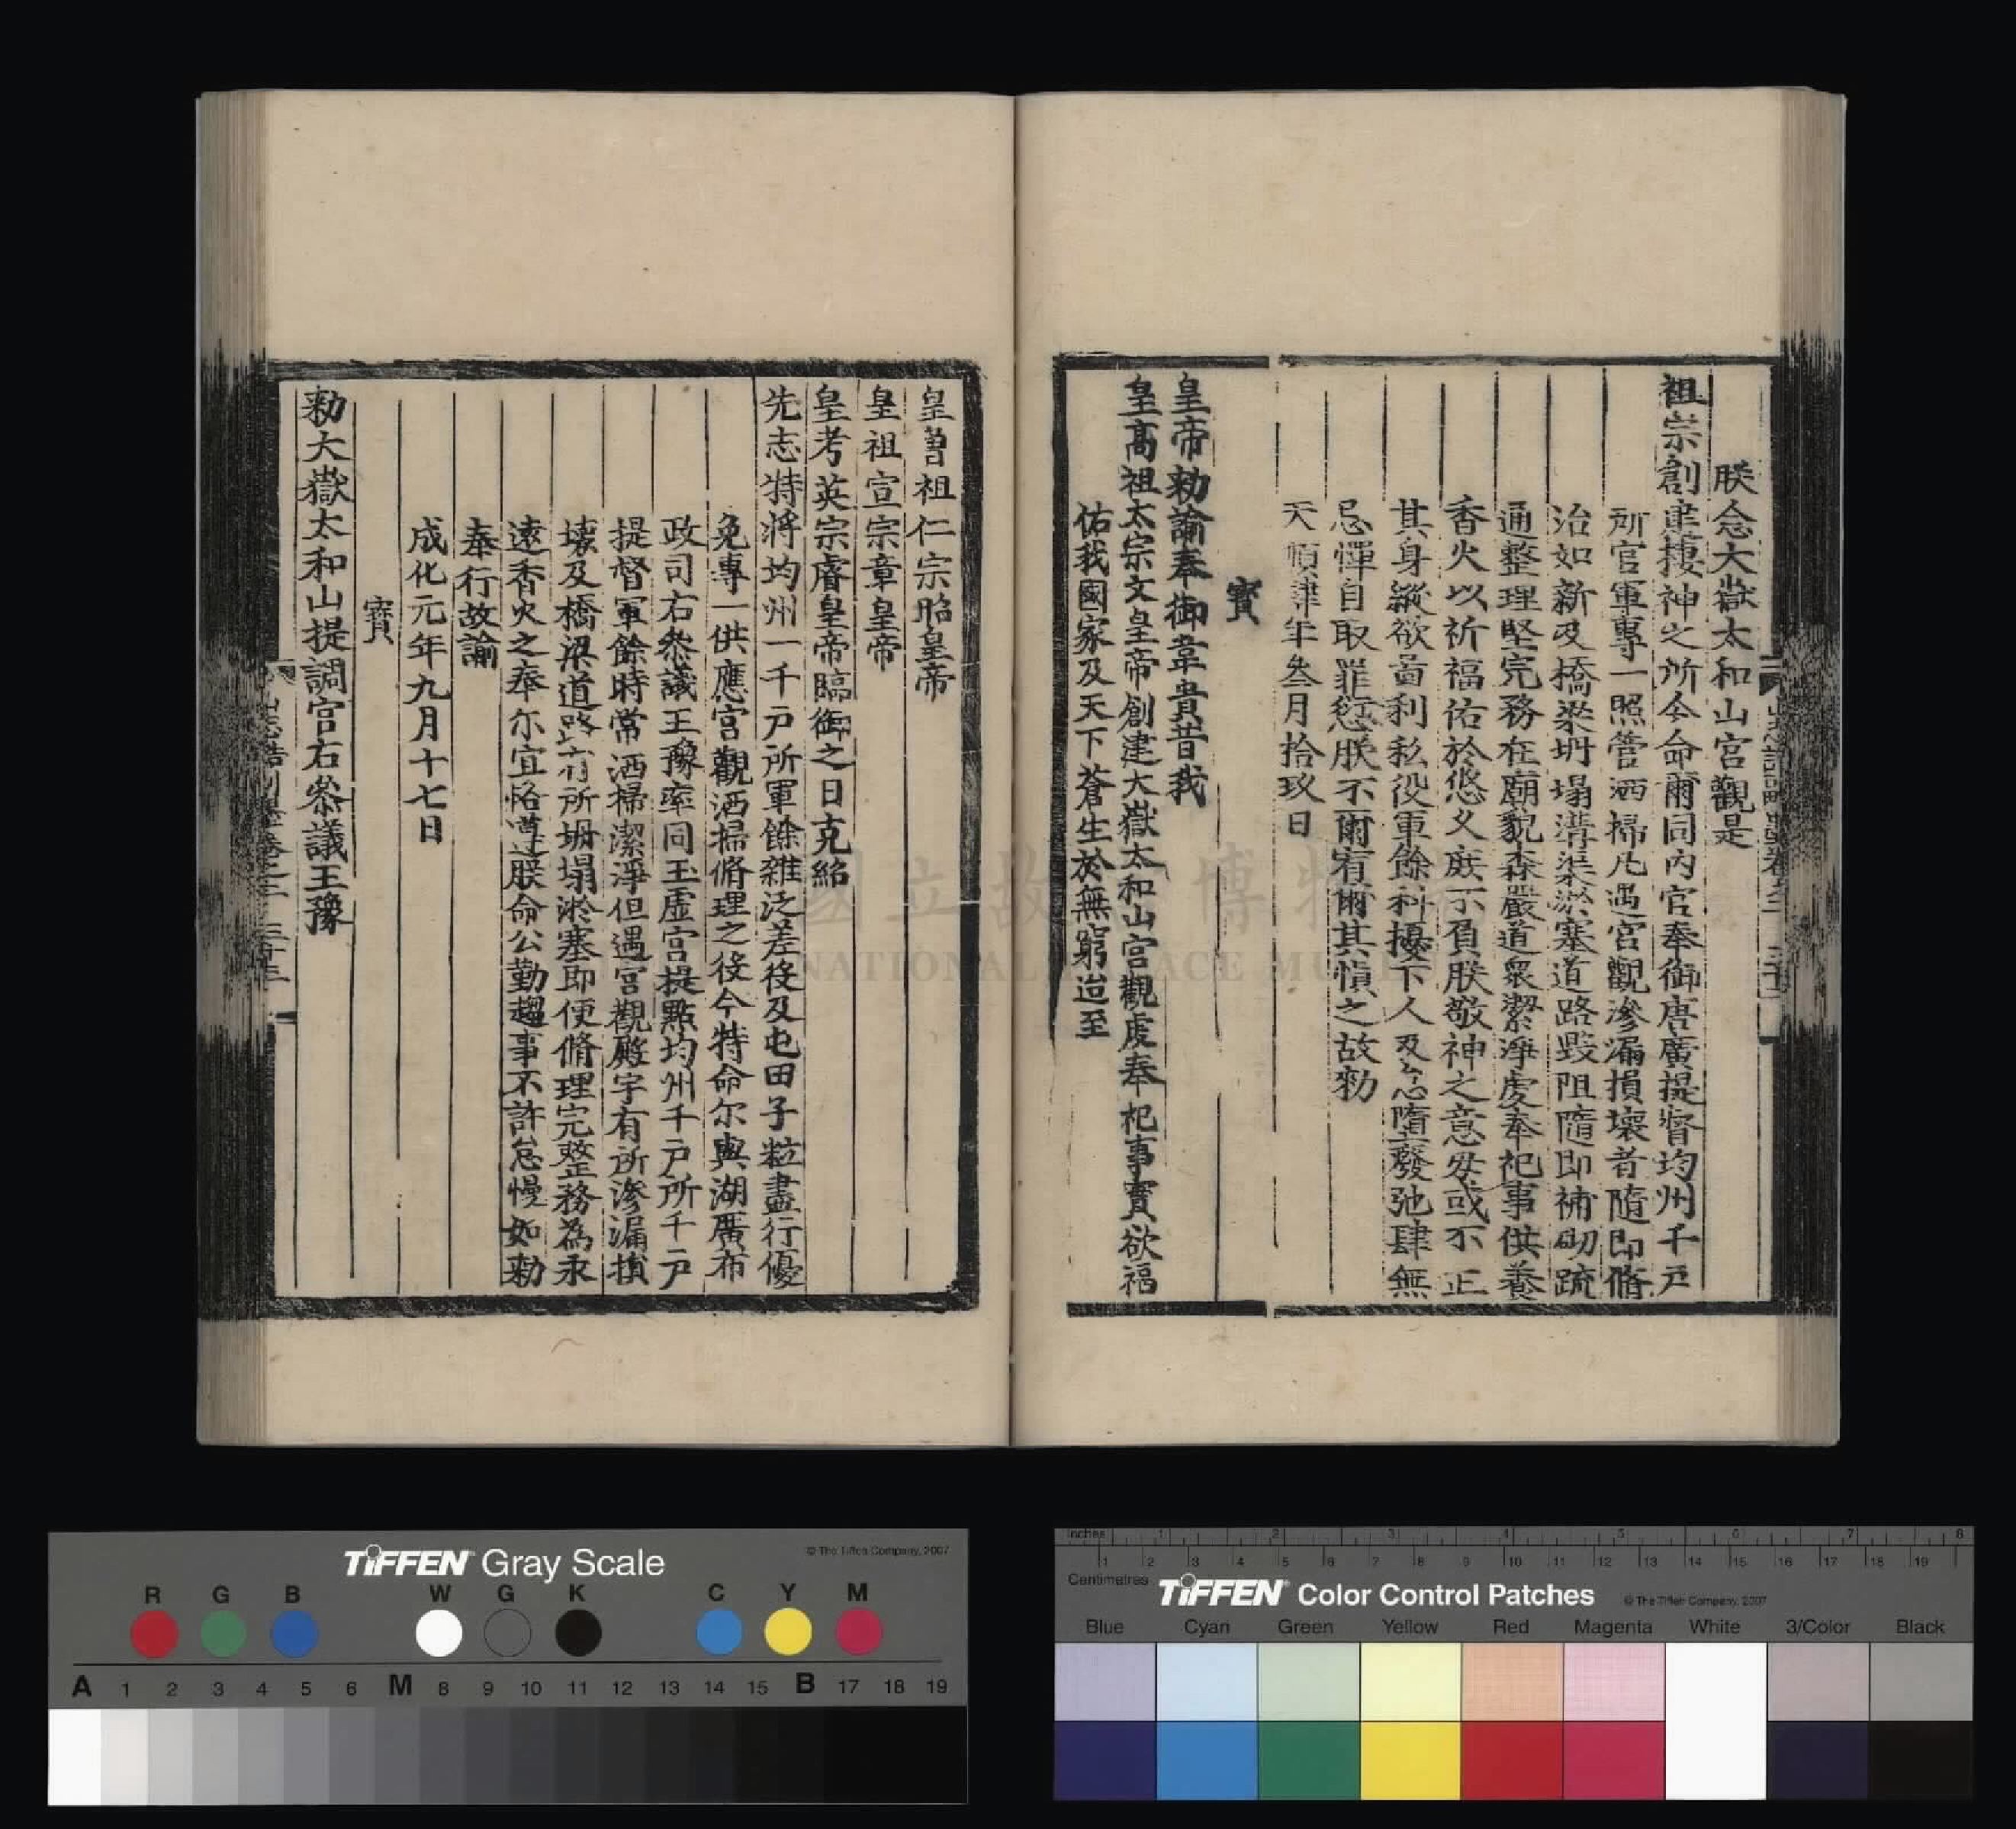 朕念大嶽太和山宮觀是
祖宗創建棲神之所今命爾同內官奉御唐廣提督均州千戶
所官軍專一照管洒掃凡遇宮觀滲漏損壞者隨即脩
治如新及橋梁坍塌溝渠淤塞道路毀阻隨即補砌疏
通整理堅完務在廟貌森嚴道衆潔淨虔奉祀事供養
香火以祈福佑於悠久庶不負朕敬神之意毋或不正
其身縱欲啚利私役軍餘科擾下人及怠隋廢弛肆無
忌憚自取罪愆朕不爾宥爾其慎之故勑
天順肆年叁月拾玖日
寶
皇帝勑諭奉御韋貴昔我
皇高祖太宗文皇帝創建大嶽太和山宮觀虔奉祀事實欲福
佑我國家及天下蒼生於無窮迨至
皇曾祖仁宗昭皇帝
皇祖宣宗章皇帝
皇考英宗睿皇帝臨御之日克紹
先志特將均州一千戶所軍餘雜泛差役及屯田子粒盡行優
免專一供應宮觀洒掃脩理之役今特命尔與湖廣布
政司右叅議王豫率同玉虛宮提點均州千戶所千戶
提督軍餘時常洒掃潔淨但遇宮觀殿宇有所滲漏損
壞及橋梁道路有所坍塌淤塞即便脩理完整務為永
遠香火之奉尔宜恪遵朕命公勤趨事不許怠慢如勑
奉行故諭
成化元年九月十七日
寶
勑大嶽太和山提調官右叅議王豫
TIFFEN Gray Scale
© The Tiffen Company, 2007
R G B W G K C Y M
A 1 2 3 4 5 6 M 8 9 10 11 12 13 14 15 B 17 18 19
Inches 1 2 3 4 5 6 7 8
1 2 3 4 5 6 7 8 9 10 11 12 13 14 15 16 17 18 19
Centimetres
TIFFEN Color Control Patches
© The Tiffen Company, 2007
Blue Cyan Green Yellow Red Magenta White 3/Color Black